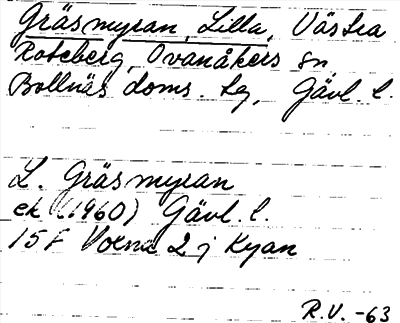 Gräsmyran, Lilla, Västra
Roteberg, Ovanåkers sn
Bollnäs doms. tg, Gävl. l.
L. Gräsmyran
ek (1960) Gävl. l.
15F Voxna 2 j Kyan
R.V. -63